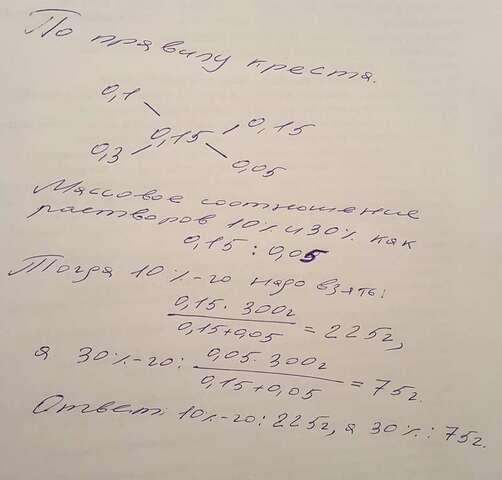 По правилу креста.
0,1
0,15
0,15
0,3
0,05
Массовое соотношение
растворов 10% и 30% как
0,15 : 0,05
Тогда 10%-го надо взять:
0,15 · 300г
0,15+0,05 = 225г,
а 30%-го: 0,05 · 300г
0,15+0,05 = 75г.
Ответ: 10%-го: 225г, а 30%: 75г.